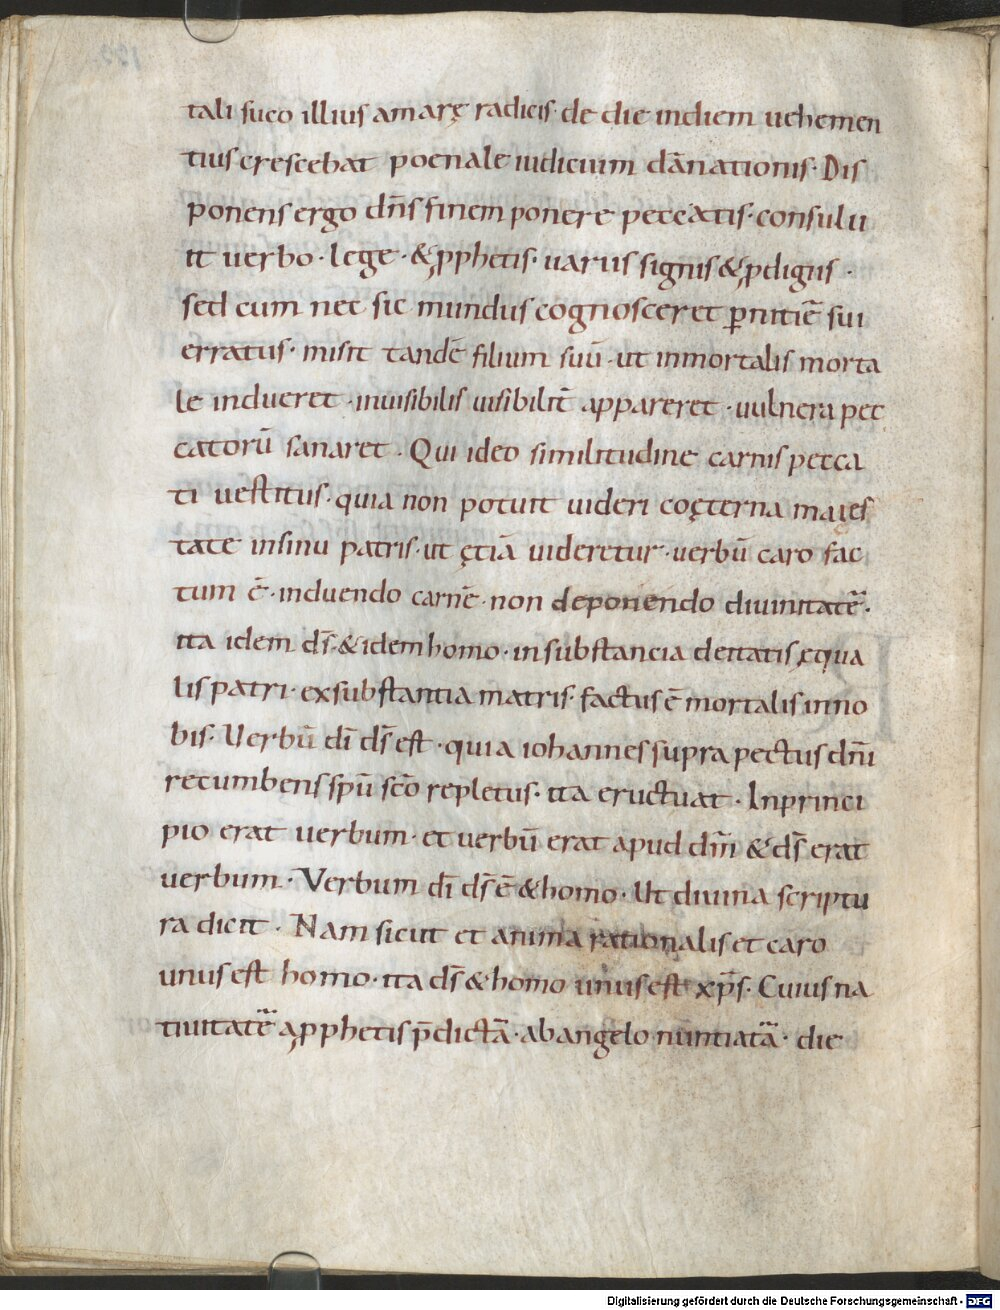 tali suco illius amarę radicis· de die indiem uehemen
tius crescebat poenale iudicium dānationis· Dis
ponens ergo dn̄s finem ponere peccatis· consulu
it uerbo· lege· & ꝓphetis· uariis signis & ꝓdigiis·
sed cum nec sic mundus cognosceret ꝑnitiē sui
erratus· misit tandē filium suū· ut inmortalis morta
le indueret· inuisibilis uisibilit̄ appareret· uulnera pec
catorū sanaret· Qui ideo similitudine carnis pecca
ti uestitus· quia non potuit uideri coęterna maies
tate insinu patris· ut ętiā uideretur· uerbū caro fac
tum ē· induendo carnē· non deponendo diuinitatē·
ita idem ds̄· & idem homo· in substancia deitatis ęqua
lis patri· ex substantia matris· factus ē mortalis inno
bis· Uerbū dī ds̄ est· quia iohannes supra pectus dn̄i
recumbens spū scō repletus· ita eructuat· Inprinci
pio erat uerbum· et uerbū erat apud dm̄ & ds̄ erat
uerbum· Verbum dī ds̄ ē & homo· Ut diuina scriptu
ra dicit· Nam sicut et anima rationalis et caro
unus est homo· ita ds̄ & homo unus est xp̄s· Cuius na
tiuitatē a ꝓphetis p̄dictā· ab angelo nuntiatā· die
Digitalisierung gefördert durch die Deutsche Forschungsgemeinschaft - DFG